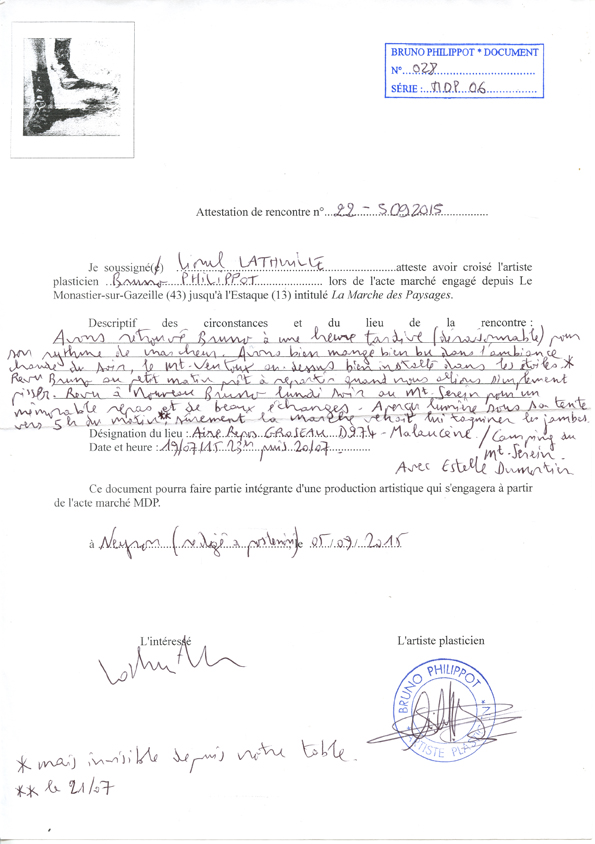 BRUNO PHILIPPOT * DOCUMENT
N°...028
SÉRIE :...MDP 06
Attestation de rencontre n°...22 - 5092015
Je soussigné(e) Lionel LATHUILLE atteste avoir croisé l'artiste
plasticien Bruno PHILIPPOT lors de l'acte marché engagé depuis Le
Monastier-sur-Gazeille (43) jusqu'à l'Estaque (13) intitulé La Marche des Paysages.
Descriptif des circonstances et du lieu de la rencontre :
Avons retrouvé Bruno à une heure tardive (déraisonnable) pour
son rythme de marcheur. Avons bien mangé bien bu dans l'ambiance
chaude du soir, le Mt-Ventoux au-dessus bien installé dans les étoiles.*
Revu Bruno au petit matin prêt à repartir quand nous allions simplement
pisser. Revu à nouveau Bruno lundi soir au Mt Serein pour un
mémorable repas et de beaux échanges. Aperçu lumière sous sa tente
vers 5h du matin** sûrement la marche venait lui taquiner les jambes.
Désignation du lieu : Aire Repos GROSEAU D974 - Malaucène / Camping du
Mt-Serein.
Date et heure : 19/07/15 23h puis 20/07
Avec Estelle Dumortier
Ce document pourra faire partie intégrante d'une production artistique qui s'engagera à partir
de l'acte marché MDP.
à Neyron (rédigé a posteriori) le 05/09/2015
L'intéressé
L'artiste plasticien
BRUNO PHILIPPOT
* ARTISTE PLASTICIEN *
* mais invisible depuis notre table.
** le 21/07